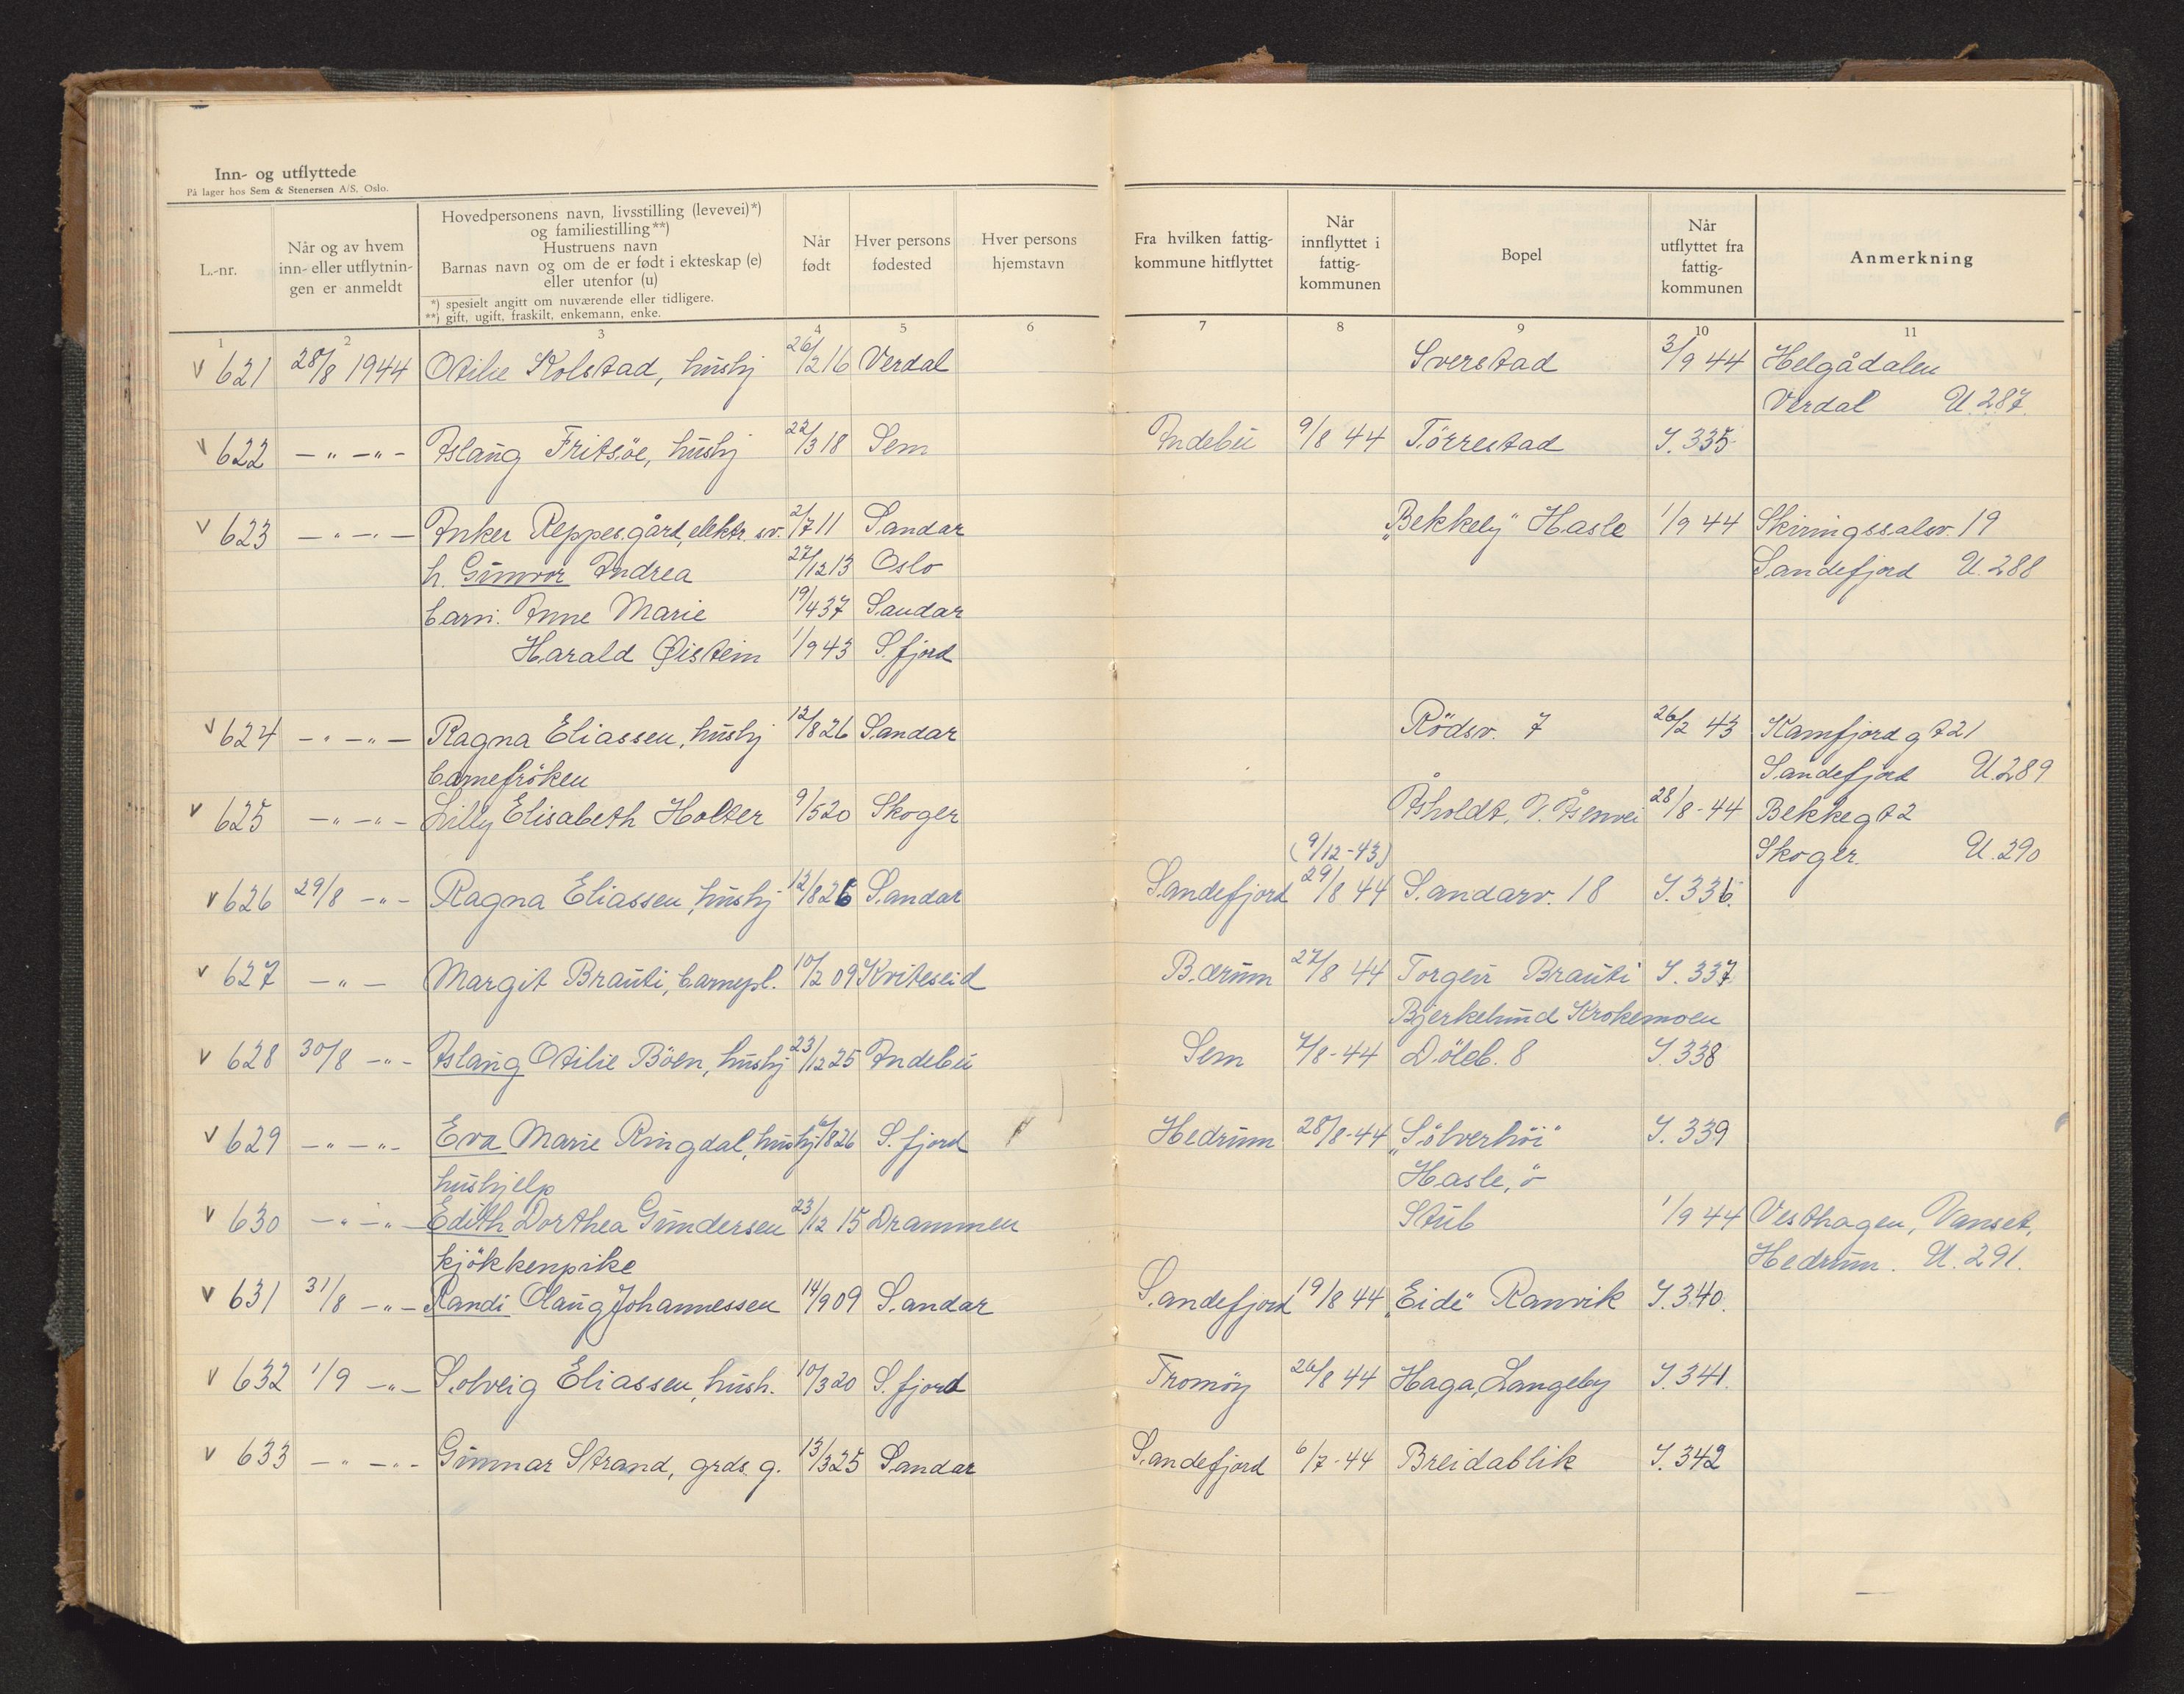 Inn- og utflyttede
På lager hos Sem & Stenersen A/S, Oslo.
L.-nr.
Når og av hvem
inn- eller utflytnin-
gen er anmeldt
Hovedpersonens navn, livsstilling (levevei)*)
og familiestilling**)
Hustruens navn
Barnas navn og om de er født i ekteskap (e)
eller utenfor (u)
*) spesielt angitt om nuværende eller tidligere.
**) gift, ugift, fraskilt, enkemann, enke.
Når
født
Hver persons
fødested
Hver persons
hjemstavn
Fra hvilken fattig-
kommune hitflyttet
Når
innflyttet i
fattig-
kommunen
Bopel
Når
utflyttet fra
fattig-
kommunen
Anmerkning
1 2 3 4 5 6 7 8 9 10 11
v 621 28/8 1944 Otilie Kolstad, hushj 26/2 16 Verdal Sverstad 3/9 44 Helgådalen
Verdal U.287.
v 622 -"-"- Aslaug Fritsøe, hushj 22/3 18 Sem Andebu 9/8 44 Tørrestad I.335.
v 623 -"-"- Anker Reppesgård, elektr. sv. 2/7 11 Sandar "Bekkely" Hasle 1/9 44 Skiringssalsv. 19
h. Gunvor Andrea 27/12 13 Oslo Sandefjord U.288
barn: Anne Marie 19/4 37 Sandar
Harald Øistein 1/9 43 S.fjord
v 624 -"-"- Ragna Eliassen, hushj 12/8 26 Sandar Rødsv. 7 26/2 43 Kamfjordgt 21
barnefrøken Sandefjord U.289
v 625 -"-"- Lilly Elisabeth Holter 9/5 20 Skoger Åsholdt, V. Åsenvei 28/8-44 Bekkegt 2
(9/12-43) Skoger. U.290
v 626 29/8 -"- Ragna Eliassen, hushj 12/8 26 Sandar Sandefjord 29/8 44 Sandarv. 18 I.336.
v 627 -"- Margit Brauti, barnepl. 10/2 09 Kviteseid Bærum 27/8 44 Torgeir Brauti I.337
Bjerkelund Krokemoen
v 628 30/8 -"- Aslaug Otilie Bøen, hushj 23/12 25 Andebu Sem 7/8-44 Døleb. 8 I.338
v 629 -"-"- Eva Marie Ringdal, hushj 6/8 26 S.fjord Hedrum 28/8-44 "Sølverhøi" I.339
hushjelp Hasle, ö
v 630 -"-"- Edith Dorthea Gundersen 23/12 15 Drammen Stub 1/9 44 Vesthagen, Vanset,
kjøkkenpike Hedrum. U.291.
v 631 31/8 -"- Randi Olaug Johannessen 14/9 09 Sandar Sandefjord 19/8 44 "Eide" Ranvik I.340.
v 632 1/9 -"- Solveig Eliassen, hush. 10/3 20 S.fjord Tromøy 26/8 44 Haga, Langeby I.341.
v 633 -"-"- Gunnar Strand, grds. g. 13/3 25 Sandar Sandefjord 6/7-44 Breidablik I.342